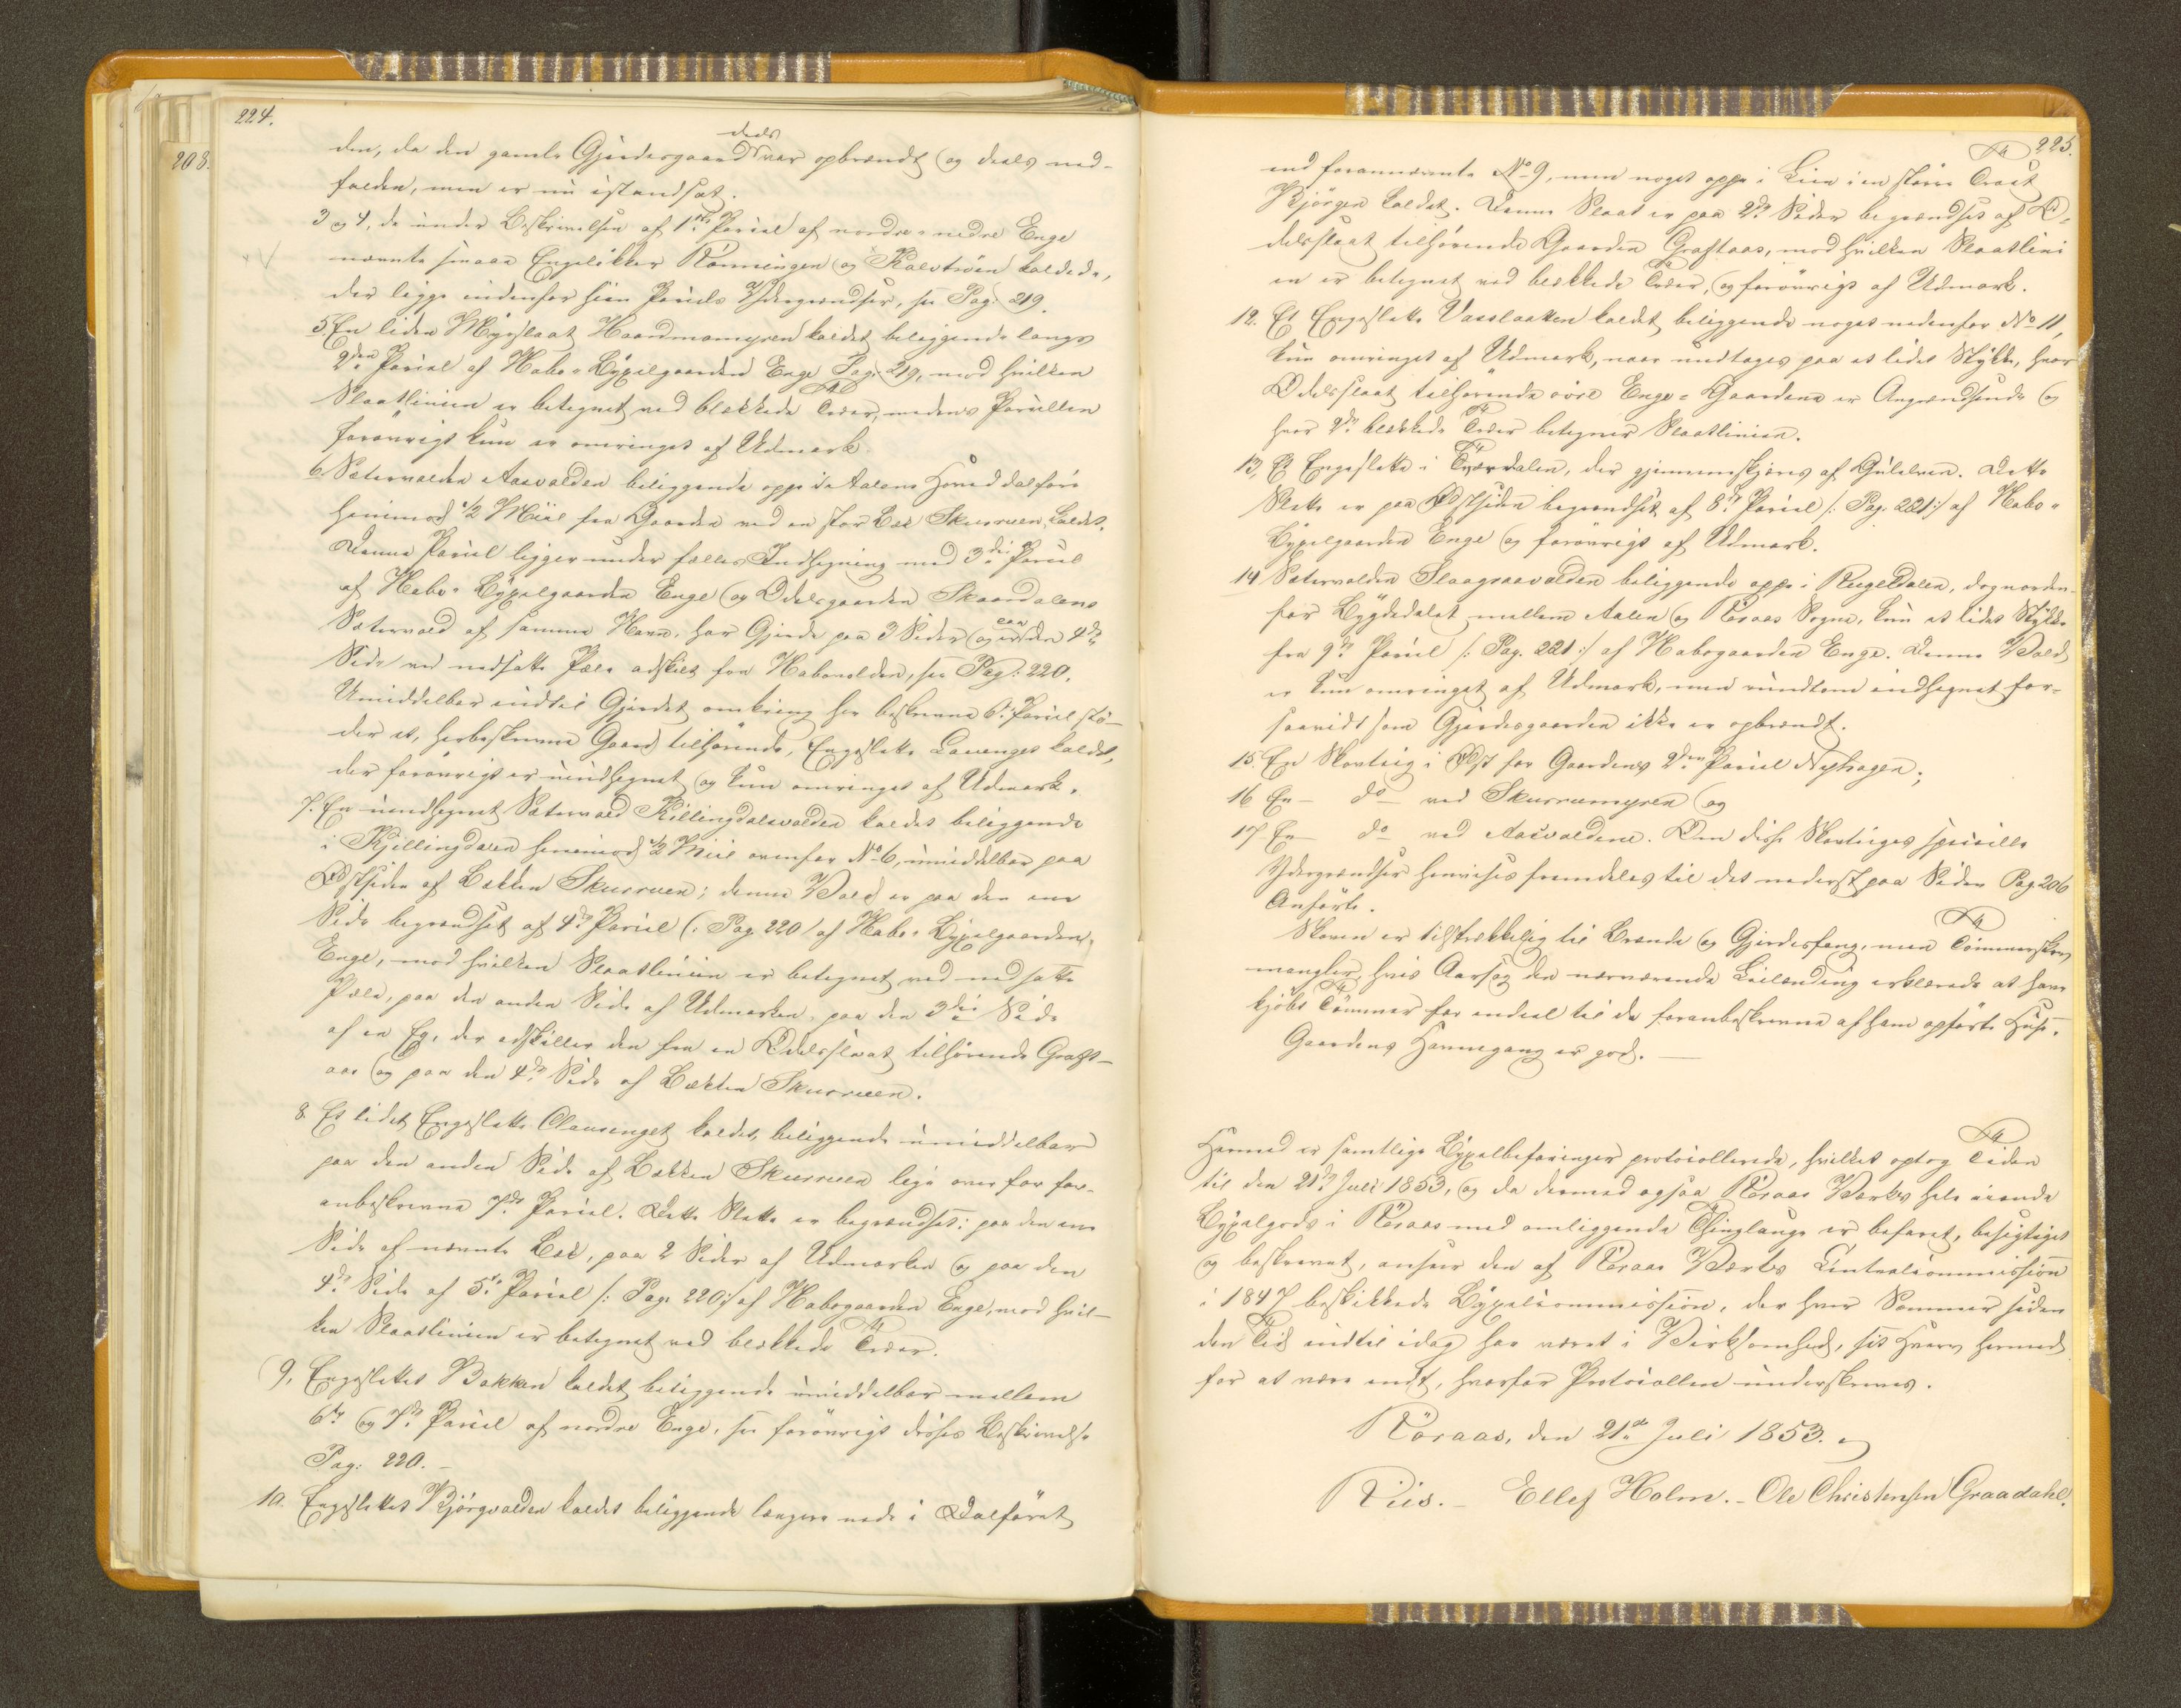 224.
208.
den, da den gamle Gjerdesgaard deels var opbrændt og deels ned-
falden, men er nu istandsat.
3 og 4, de under Beskrivelsen af 1ste Parcel af nordre-nedre Enge
nævnte smaae Engeløkker Rønningen og Kalvtrøen kaldede,
der ligge indenfor hiin Parcels Ydergrændser, see Pag: 219.
5 En liden Myrslaat Haandmomyren kaldet beliggende langs
2den Parcel af Habo-Bÿxelgaarden Enge Pag: 219, mod hvilken
Slaatlinien er betegnet ved blækkede Træer, medens Parcellen
forøvrigt kun er omringet af Udmark.
6 Sætervolden Aasvolden beliggende oppe i Aalens Hoveddalføre
henimod 1/2 Miil fra Gaarden ved en stor Bæk Skurruen kaldet.
Denne Parcel ligger under fælles Indhegning med 3die Parcel
af Habo-Bÿxelgaarden Enge og Odelsgaarden Skaardalens
Sætervold af samme Navn, har Gjerde paa 3 Sider og er paa den 4de
Side ved nedsatte Pæle adskilt fra Habovolden, see Pag: 220.
Umiddelbar indtil Gjerdet omkring her beskrevne 6te Parcel stø-
der et, herbeskrevne Gaard tilhørende, Engeslette Lauenget kaldet,
der forøvrigt er uindhegnet og kun omringet af Udmark.
7. En uindhegnet Sætervold Killingdalsvolden kaldet beliggende
i Kjillingdalen henimod 1/2 Miil ovenfor No 6, umiddelbar paa
Østsiden af Bækken Skurruen; denne Vold er paa den ene
Side begrændset af 4de Parcel (: Pag 220 :) af Habo-Bÿxelgaarden
Enge, mod hvilken Slaatlinien er betegnet ved nedsatte
Pæle, paa den anden Side af Udmarken, paa den 3die Side
af en Eg, der adskiller den fra en Odelsslaat tilhørende Graft-
aas og paa den 4de Side af Bækken Skurruen.
8. Et lidet Engeslette Clausenget kaldet, beliggende umiddelbar
paa den anden Side af Bækken Skurruen lige over for for-
anbeskrevne 7de Parcel. Dette Slette er begrændset: paa den ene
Side af nævnte Bæk, paa 2 Sider af Udmarken og paa den
4de Side af 5te Parcel /: Pag: 220 :/ af Habogaarden Enge, mod hvil-
ken Slaatlinien er betegnet ved blækkede Træer.
9. Engeslettet Bakken kaldet beliggende umiddelbar mellem
6te og 7de Parcel af nordre Enge, see forøvrigt disses Beskrivelse
Pag: 220.
10. Engeslettet Kjørgvolden kaldet beliggende længere nede i Dalføret
225.
end forannævnte No 9, men noget oppe i Lien i en større Tract
Kjørgen kaldet. Denne Slaat er paa 2de Sider begrændset af O-
delsslaat tilhørende Gaarden Graftaas, mod hvilken Slaatlini
en er betegnet ved blækkede Træer, og forøvrigt af Udmark.
12. Et Engeslette Vasslaatten kaldet beliggende noget nedenfor No 11,
kun omringet af Udmark, naar undtages paa et lidet Stykke, hvor
Odelsslaat tilhørende øvre Enge-Gaardene er Angrændsende og
hvor 2de blækkede Træer betegner Slaatlinien.
13, Et Engeslette i Tverdalen, der gjennemskjæres af Gulelven. Dette
Slette er paa Østsiden begrændset af 8de Parcel /: Pag: 221 :/ af Habo-
Bÿxelgaarden Enge og forøvrigt af Udmark.
14 Sætervolden Slaagraavolden beliggende oppe i Rugeldalen, dog norden-
for Bygdedelet mellem Aalen og Røraas Sogne, kun et lidet Stykke
fra 9de Parcel /: Pag. 221 :/ af Habogaarden Enge. Denne Vold
er kun omringet af Udmark, men rundtom indhegnet for-
saavidt som Gjerdesgaarden ikke er opbrændt.
15. En Skovteig i Øst for Gaardens 2den Parcel Nyhagen;
16 En — do — ved Skurruemyren og
17 En — do ved Aasvoldene. Om disse Skovteiges specielle
Ydergrændser henvises fremdeles til det nederst paa Siden Pag. 206
Anførte.
Skoven er tilstrækkelig til Brænde og Gjerdesfang, men Tømmerskov
mangler, hvis Aarsag den nærværende Leilænding erklærede at have
kjøbt Tømmer for endeel til de foranbeskrevne af ham opførte Huse.
Gaardens Havnegang er god. —
Hermed er samtlige Bÿxelbefaringer protocollerede, hvilket optog Tiden
til den 21de Juli 1853, og da dermed ogsaa Røraas Værks hele eiende
Bÿxelgods i Røraas med omliggende Thinglauge er befaret, besigtiget
og beskrevet, anseer den af Røraas Værks Centralcommission
i 1847 beskikkede Bÿxelcommission, der hver Sommer siden
den Tid indtil idag har været i Virksomhed, sit Hverv hermed
for at være endt, hvorfor Protocollen underskrives.
Röraas, den 21de Juli 1853.
Riis. — Ellef Holm. — Ole Christensen Graadahl.